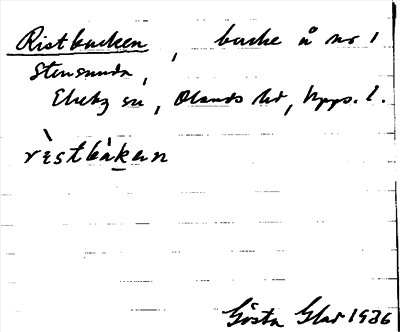 Ristbacken, backe å nr 1
Stensunda,
Ekeby sn, Olands hd, Upps. l.
rìstbàkɛn
Gösta Glad 1936